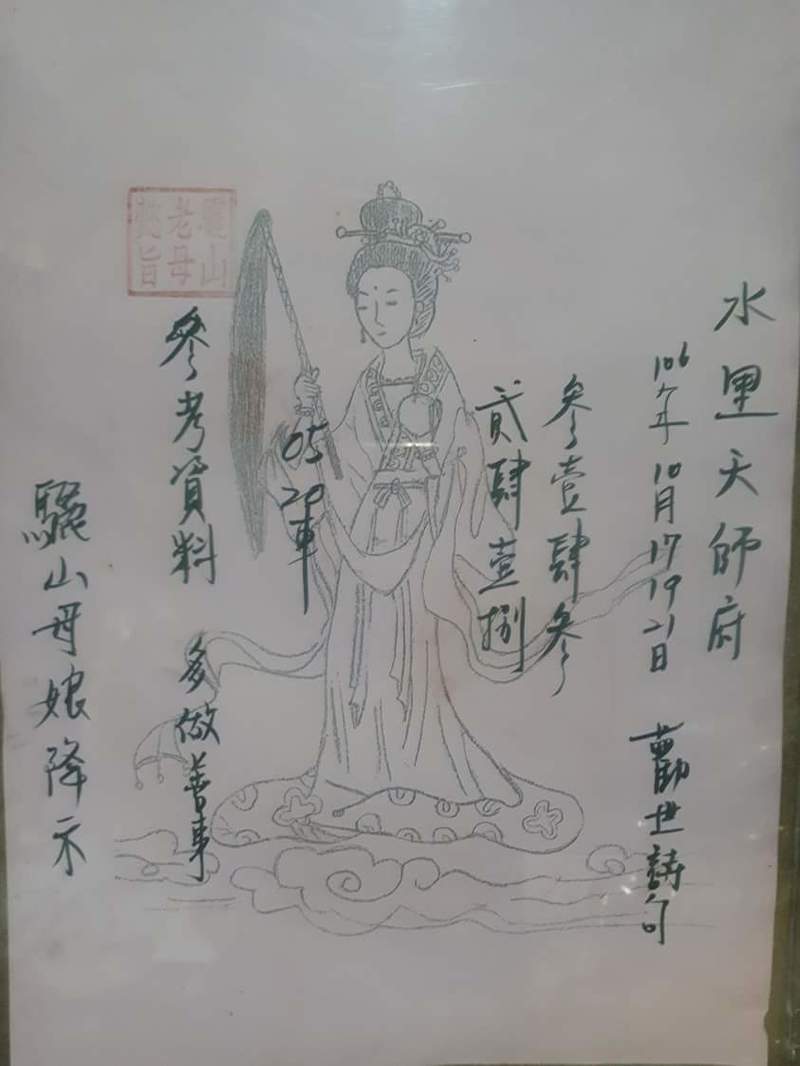 水里天師府
106年10月17 19 21日 勸世詩句
參壹肆參
貳肆壹捌
05 20車
參考資料 多做善事
驪山母娘降示
驪山
老母
懿旨